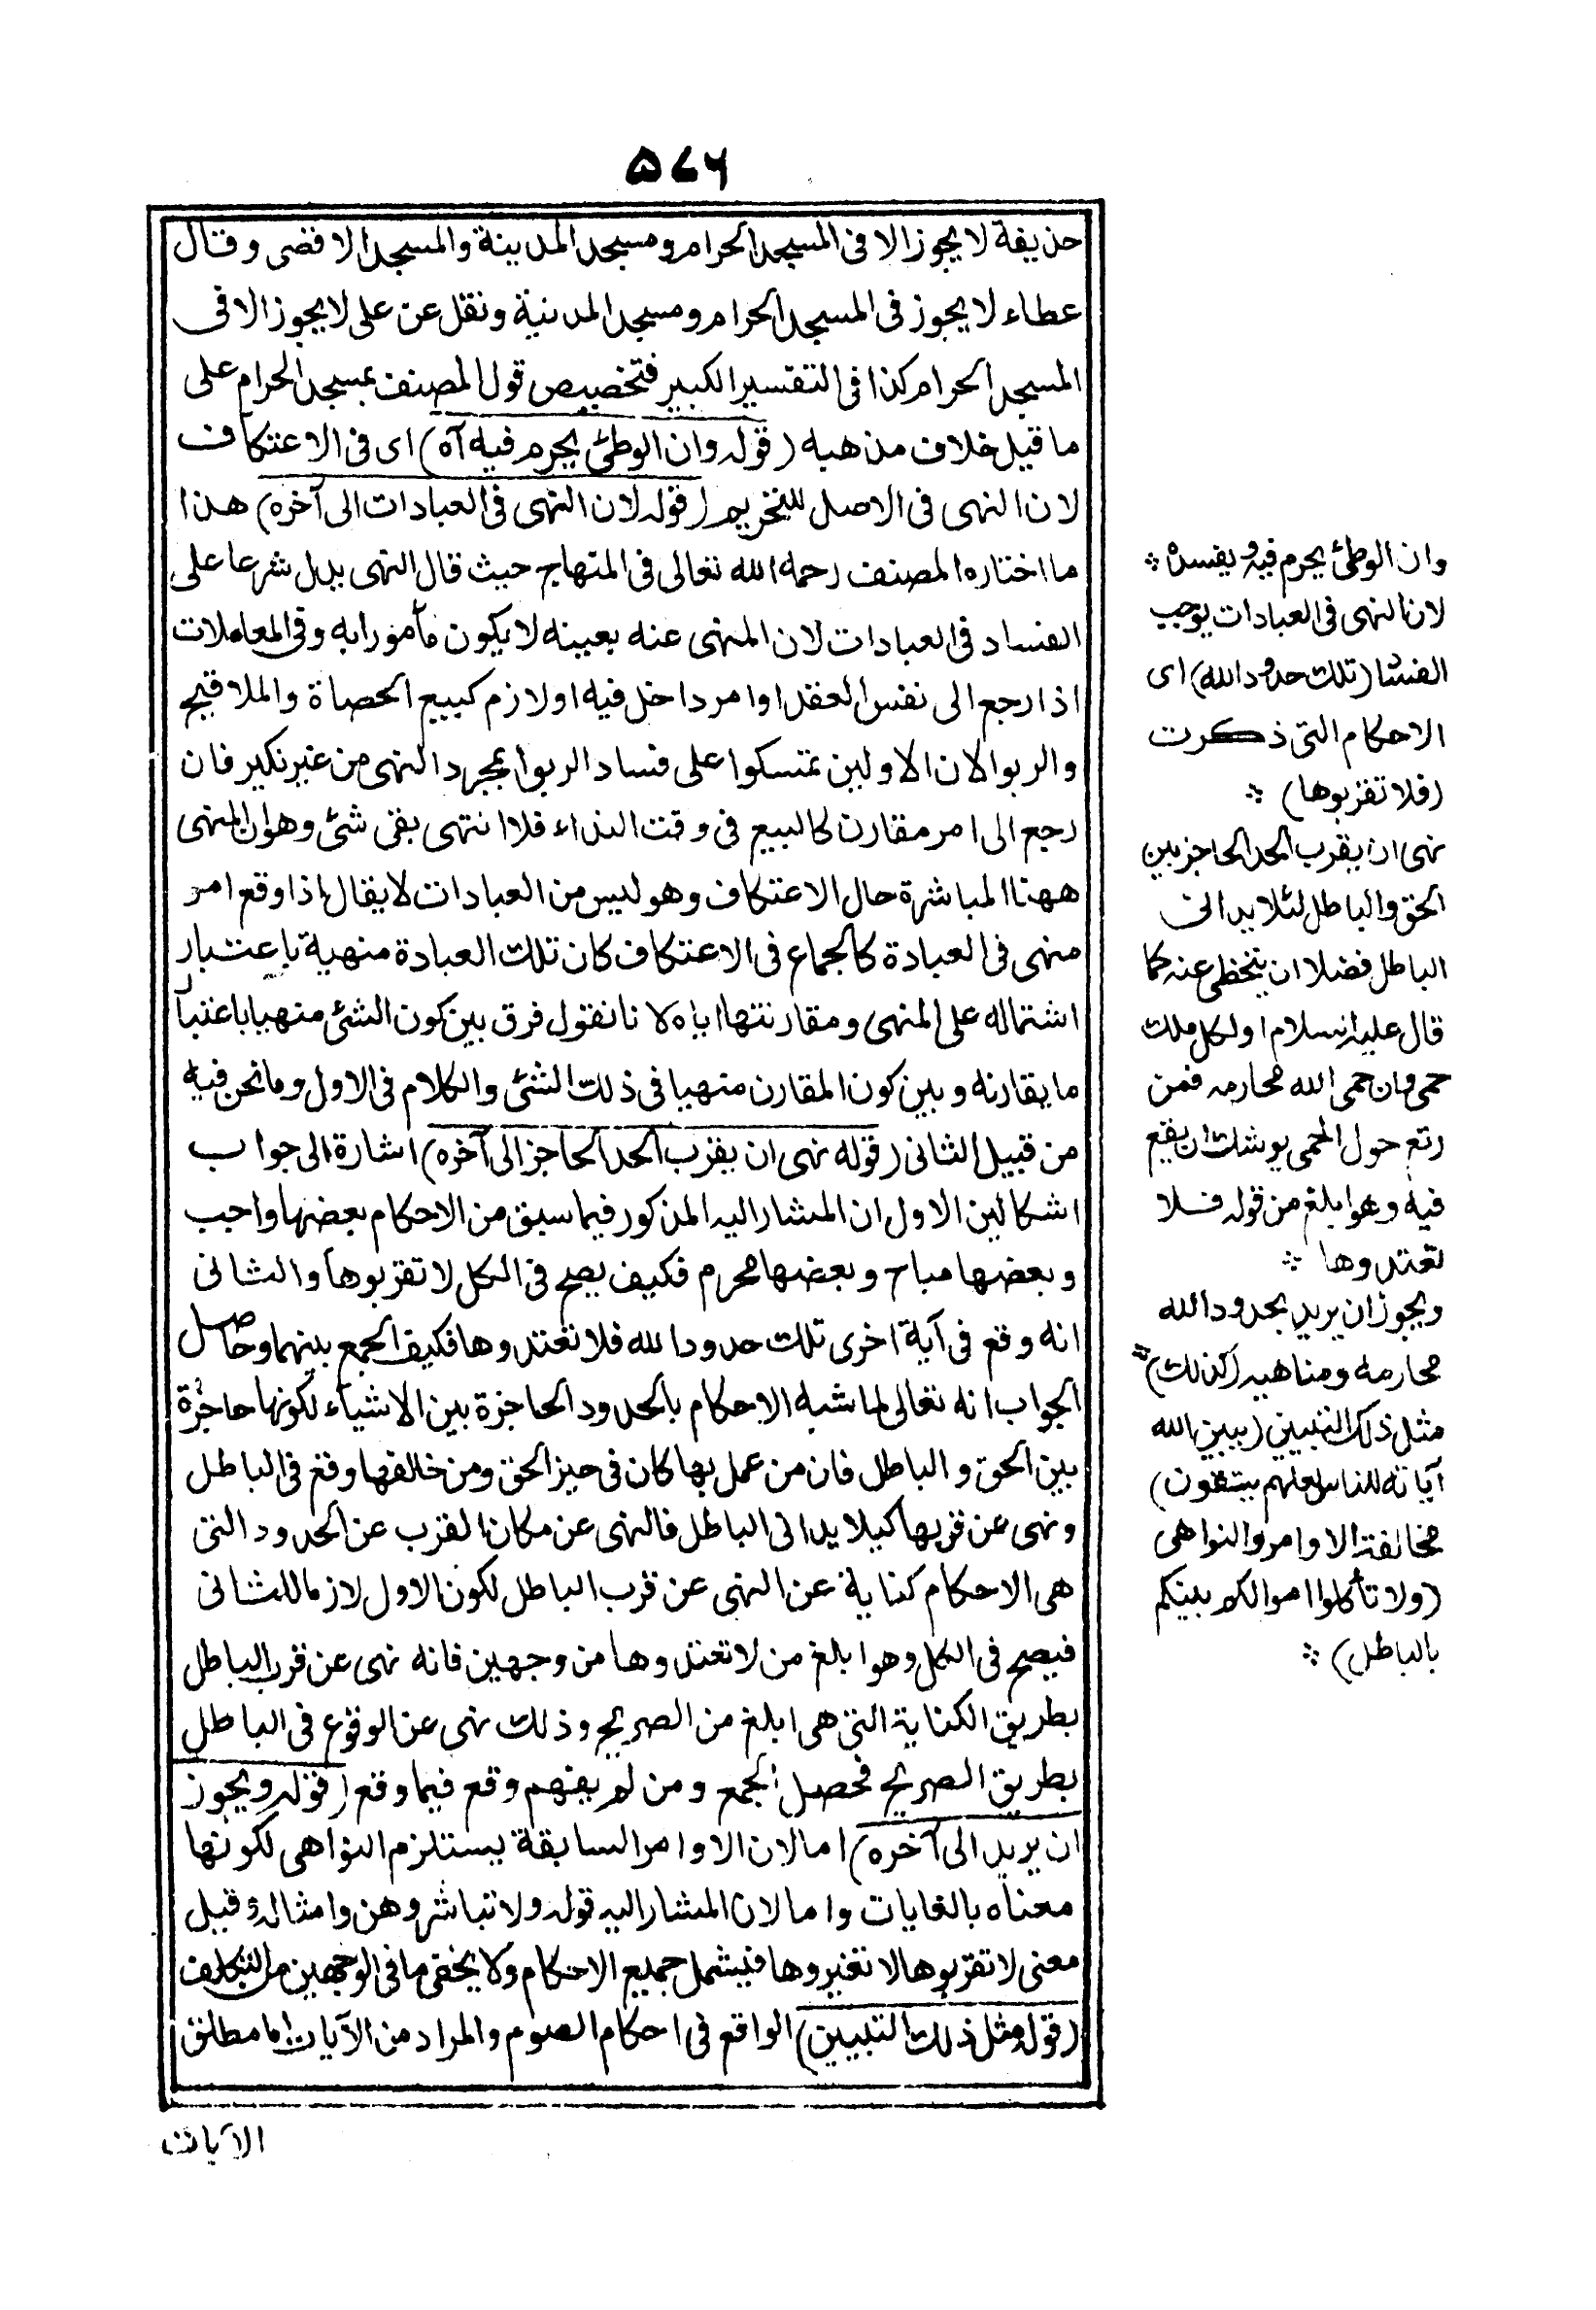 ٥٧٦
حذيفة لا يجوز الا فى المسجد الحرام ومسجد المدينة والمسجد الاقصى وقال
عطاء لا يجوز فى المسجد الحرام ومسجد المدينة ونقل عن على لا يجوز الا فى
المسجد الحرام كذا فى التفسير الكبير فتخصيص قول المصنف بمسجد الحرام على
ما قيل خلاف مذهبه (قوله وان الوطئ يحرم فيه آه) اى فى الاعتكاف
لان النهى فى الاصل للتحريم (قوله لان النهى فى العبادات الى آخره) هذا
ما اختاره المصنف رحمه الله تعالى فى المنهاج حيث قال النهى يدل شرعا على
الفساد فى العبادات لان المنهى عنه بعينه لا يكون مأمورا به وفى المعاملات
اذا رجع الى نفس العقد او امر داخل فيه او لازم كبيع الحصاة والملاقيح
والربوا لان الاولين تمتسكوا على فساد الربوا بمجرد النهى من غير نكير فان
رجع الى امر مقارن كالبيع فى وقت النداء فلا انتهى بقى شئ وهو ان المنهى
ههنا المباشرة حال الاعتكاف وهو ليس من العبادات لا يقال اذا وقع امر
منهى فى العبادة كالجماع فى الاعتكاف كان تلك العبادة منهية باعتبار
اشتماله على المنهى ومقارنتها اياه لانا نقول فرق بين كون الشئ منهيا باعتبار
ما يقارنه وبين كون المقارن منهيا فى ذلك الشئ والكلام فى الاول وما نحن فيه
من قبيل الثانى (قوله نهى ان يقرب الحد الحاجز الى آخره) اشارة الى جواب
اشكالين الاول ان المشار اليه المذكور فيما سبق من الاحكام بعضها واجب
وبعضها مباح وبعضها محرم فكيف يصح فى الكل لا تقربوها والثانى
انه وقع فى آية اخرى تلك حدود الله فلا تعتدوها فكيف الجمع بينهما وحاصل
الجواب انه تعالى لما شبه الاحكام بالحدود الحاجزة بين الاشياء لكونها حاجزة
بين الحق والباطل فان من عمل بها كان فى حيز الحق ومن خالفها وقع فى الباطل
ونهى عن قربها كيلا يدانى الباطل فالنهى عن مكان القرب عن الحدود التى
هى الاحكام كناية عن النهى عن قرب الباطل لكون الاول لازما للثانى
فيصح فى الكل وهو ابلغ من لا تعتدوها من وجهين فانه نهى عن قرب الباطل
بطريق الكناية التى هى ابلغ من الصريح وذلك نهى عن الوقوع فى الباطل
بطريق الصريح فحصل الجمع ومن لم يفهم وقع فيما وقع (قوله ويجوز
ان يريد الى آخره) اما لان الاوامر السابقة يستلزم النواهى لكونها
معناه بالغايات واما لان المشار اليه قوله ولا تباشروهن وامثاله قيل
معنى لا تقربوها لا تغيروها فيشمل جميع الاحكام ولا يخفى ما فى الوجهين من التكلف
(قوله مثل ذلك التبيين) الواقع فى احكام الصوم والمراد من الآيات اما مطلق
الآيات
وان الوطئ يحرم فيه ويفسده
لان النهى فى العبادات يوجب
الفساد (تلك حدود الله) اى
الاحكام التى ذكرت
(فلا تقربوها)
نهى ان يقرب الحد الحاجز بين
الحق والباطل لئلا يدانى
الباطل فضلا ان يتخطى عنه كما
قال عليه السلام ان لكل ملك
حمى وان حمى الله محارمه فمن
رتع حول الحمى يوشك ان يقع
فيه وهو ابلغ من قوله فلا
تعتدوها
ويجوز ان يريد بحدود الله
محارمه ومناهيه (كذلك)
مثل ذلك التبيين (يبين الله
آياته للناس لعلهم يتقون)
مخالفة الاوامر والنواهى
(ولا تأكلوا اموالكم بينكم
بالباطل)